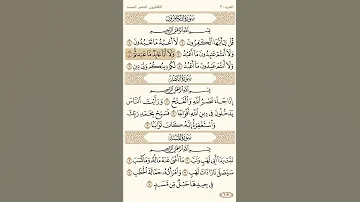 سُورَةُ الكَافِرُونَ
بِسْمِ اللَّهِ الرَّحْمَٰنِ الرَّحِيمِ
قُلْ يَا أَيُّهَا الْكَافِرُونَ ١ لَا أَعْبُدُ مَا تَعْبُدُونَ ٢
وَلَا أَنتُمْ عَابِدُونَ مَا أَعْبُدُ ٣ وَلَا أَنَا عَابِدٌ مَّا عَبَدتُّمْ ٤
وَلَا أَنتُمْ عَابِدُونَ مَا أَعْبُدُ ٥ لَكُمْ دِينُكُمْ وَلِيَ دِينِ ٦
سُورَةُ النَّصْرِ
بِسْمِ اللَّهِ الرَّحْمَٰنِ الرَّحِيمِ
إِذَا جَاءَ نَصْرُ اللَّهِ وَالْفَتْحُ ١ وَرَأَيْتَ النَّاسَ
يَدْخُلُونَ فِي دِينِ اللَّهِ أَفْوَاجًا ٢ فَسَبِّحْ بِحَمْدِ رَبِّكَ
وَاسْتَغْفِرْهُ إِنَّهُ كَانَ تَوَّابًا ٣
سُورَةُ المَسَدِ
بِسْمِ اللَّهِ الرَّحْمَٰنِ الرَّحِيمِ
تَبَّتْ يَدَا أَبِي لَهَبٍ وَتَبَّ ١ مَا أَغْنَىٰ عَنْهُ مَالُهُ وَمَا كَسَبَ ٢
سَيَصْلَىٰ نَارًا ذَاتَ لَهَبٍ ٣ وَامْرَأَتُهُ حَمَّالَةَ الْحَطَبِ ٤
فِي جِيدِهَا حَبْلٌ مِّن مَّسَدٍ ٥
٦٠٣